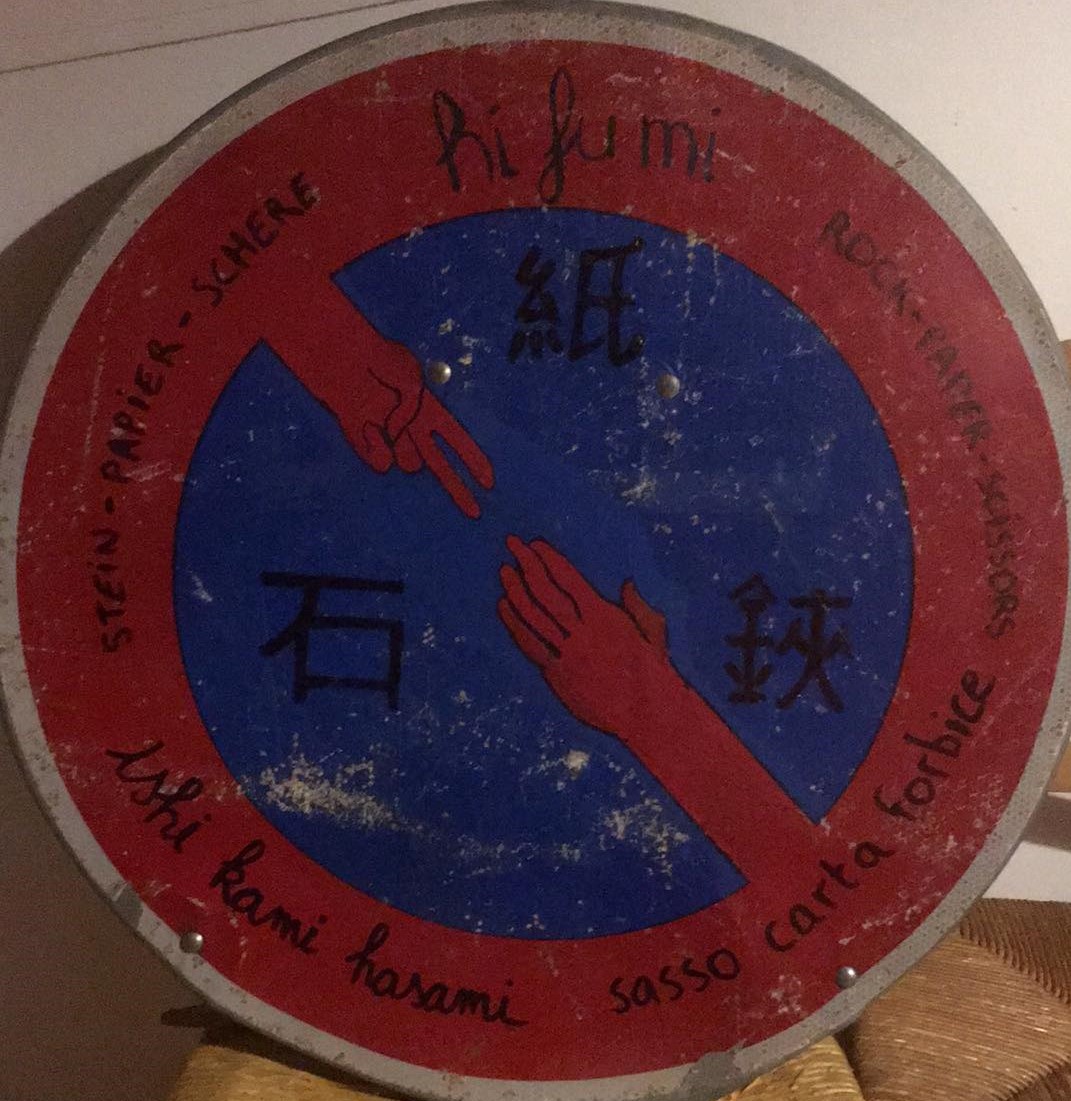 hi fu mi
STEIN-PAPIER-SCHERE
ROCK-PAPER-SCISSORS
紙
石
鋏
ishi kami hasami
sasso carta forbice